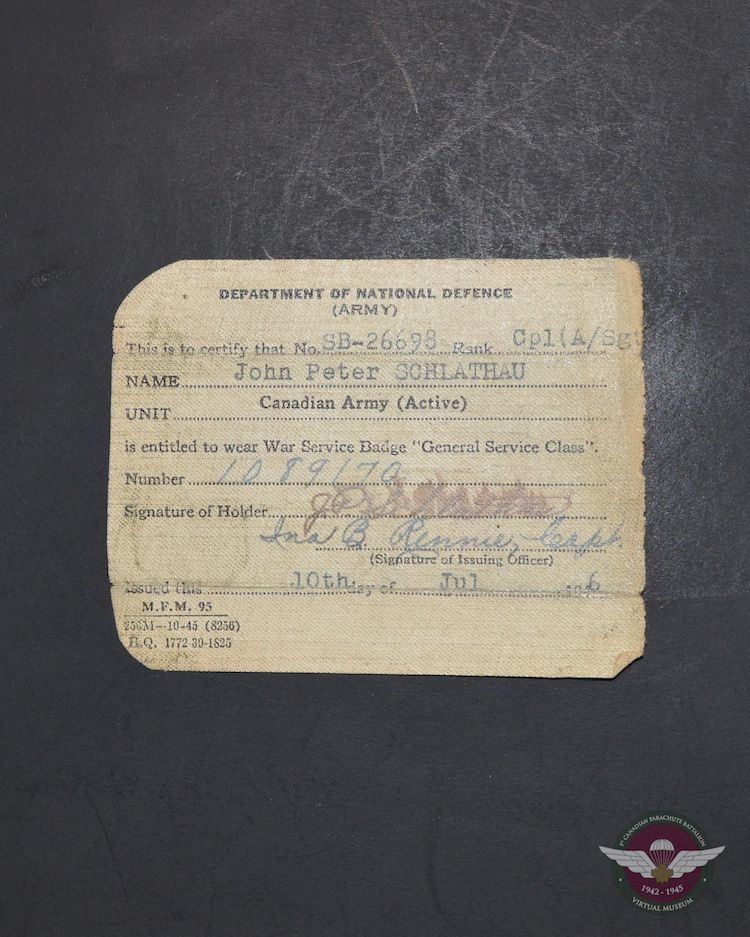 DEPARTMENT OF NATIONAL DEFENCE
(ARMY)
This is to certify that No. SB-26698 Rank Cpl(A/Sgt
NAME John Peter SCHLATHAU
UNIT Canadian Army (Active)
is entitled to wear War Service Badge "General Service Class".
Number 1089170
Signature of Holder
Ina B Rennie, Capt.
(Signature of Issuing Officer)
Issued this 10th day of Jul 6
M.F.M. 95
250M—10-45 (8256)
H.Q. 1772-39-1825
1ST CANADIAN PARACHUTE BATTALION
1942 - 1945
VIRTUAL MUSEUM